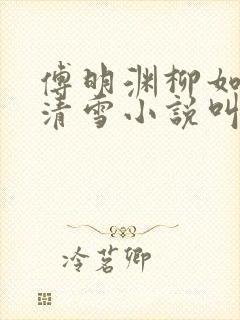 傅明渊柳如
清雪小说叫
冷茗卿